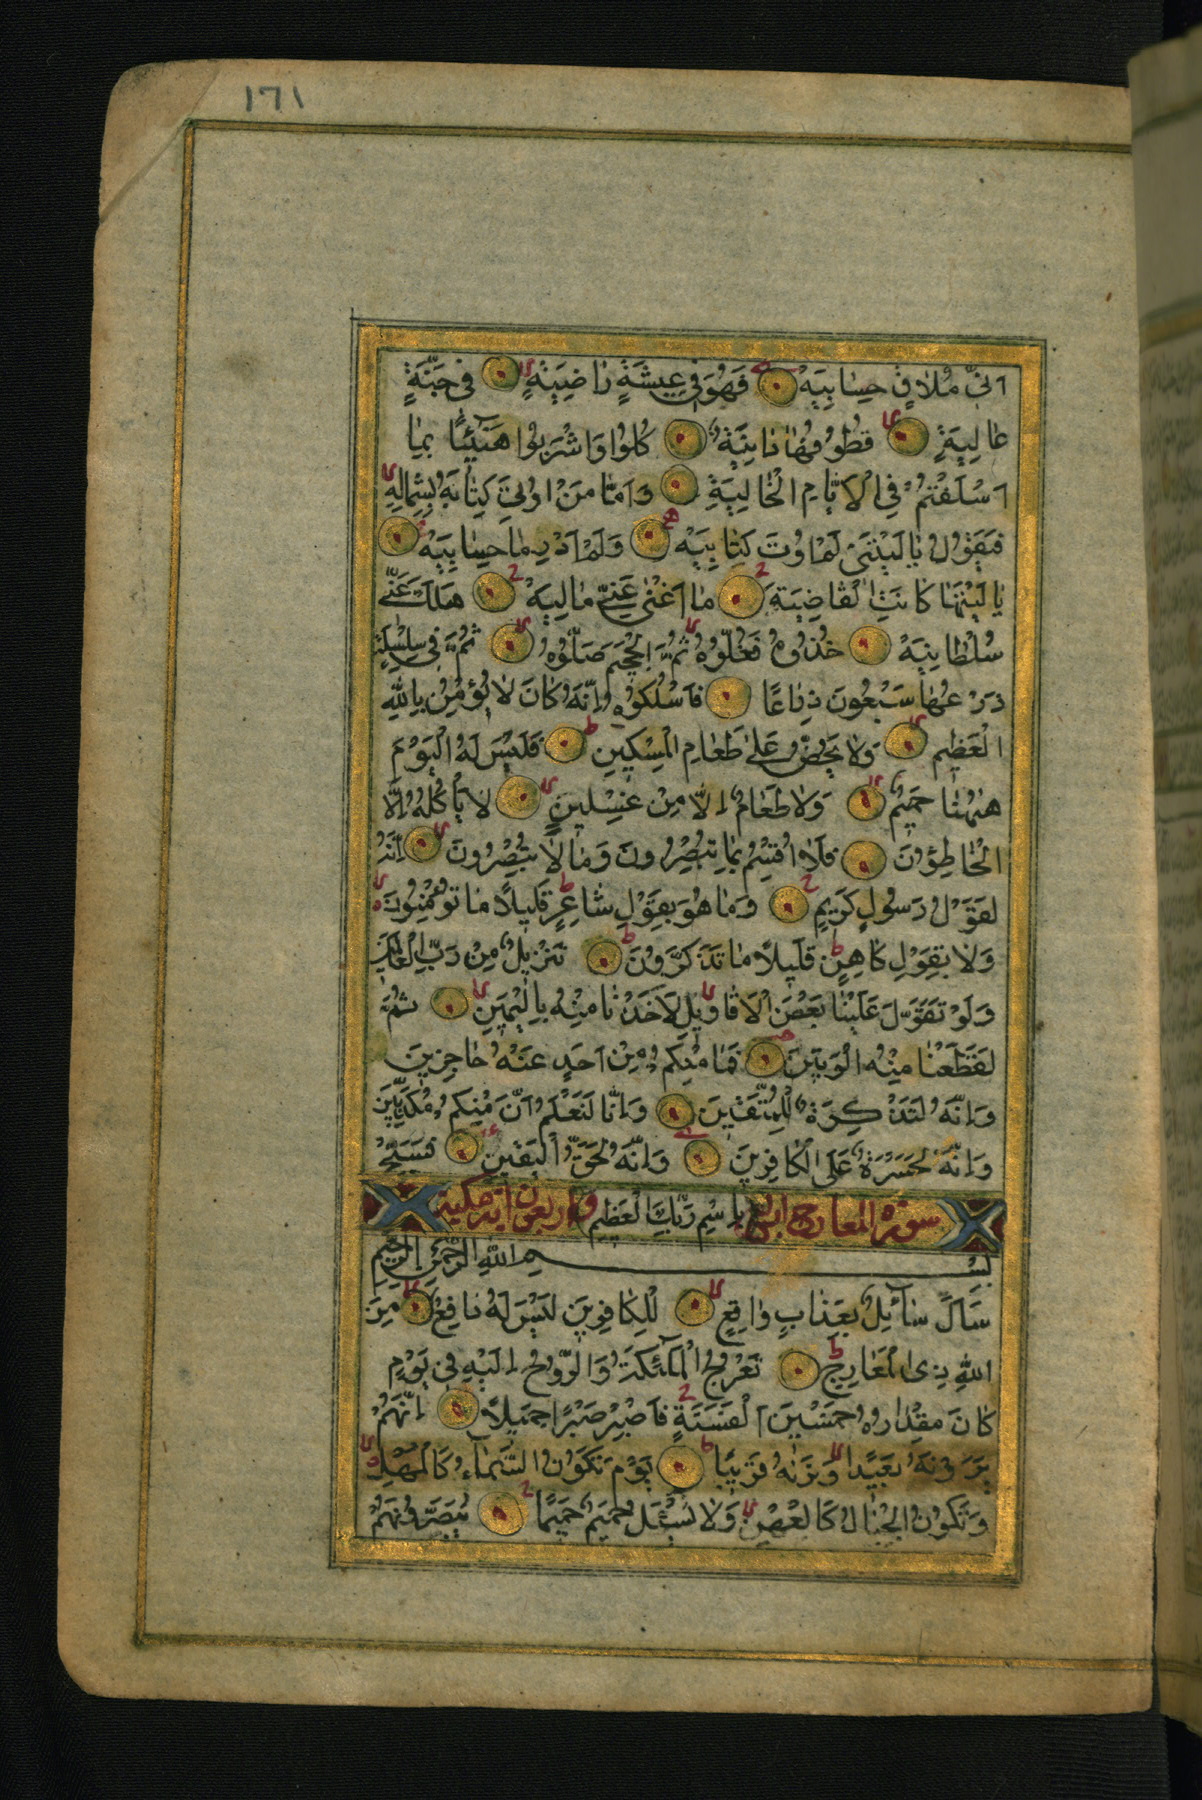 ١٦١
اَنّى مُلاقٍ حِسابِيَهْ فَهُوَ فى عِيشَةٍ راضِيَةٍ فى جَنَّةٍ
عالِيَةٍ قُطُوفُها دانِيَةٌ كُلُوا وَاشْرَبُوا هَنيئًا بِما
اَسْلَفْتُمْ فِى الْاَيّامِ الْخالِيَةِ وَاَمّا مَنْ اُوتِىَ كِتابَهُ بِشِمالِهِ
فَيَقُولُ يا لَيْتَنى لَمْ اُوتَ كِتابِيَهْ وَلَمْ اَدْرِ ما حِسابِيَهْ
يا لَيْتَها كانَتِ الْقاضِيَةَ ما اَغْنى عَنّى مالِيَهْ هَلَكَ عَنّى
سُلْطانِيَهْ خُذُوهُ فَغُلُّوهُ ثُمَّ الْجَحيمَ صَلُّوهُ ثُمَّ فى سِلْسِلَةٍ
ذَرْعُها سَبْعُونَ ذِراعًا فَاسْلُكُوهُ اِنَّهُ كانَ لا يُؤْمِنُ بِاللّهِ
الْعَظيمِ وَلا يَحُضُّ عَلى طَعامِ الْمِسْكينِ فَلَيْسَ لَهُ الْيَوْمَ
ههُنا حَميمٌ وَلا طَعامٌ اِلّا مِنْ غِسْلينٍ لا يَأْكُلُهُ اِلَّا
الْخاطِؤُنَ فَلا اُقْسِمُ بِما تُبْصِرُونَ وَما لا تُبْصِرُونَ اِنَّهُ
لَقَوْلُ رَسُولٍ كَريمٍ وَما هُوَ بِقَوْلِ شاعِرٍ قَليلًا ما تُؤْمِنُونَ
وَلا بِقَوْلِ كاهِنٍ قَليلًا ما تَذَكَّرُونَ تَنْزيلٌ مِنْ رَبِّ الْعالَمينَ
وَلَوْ تَقَوَّلَ عَلَيْنا بَعْضَ الْاَقاويلِ لَاَخَذْنا مِنْهُ بِالْيَمينِ ثُمَّ
لَقَطَعْنا مِنْهُ الْوَتينَ فَما مِنْكُمْ مِنْ اَحَدٍ عَنْهُ حاجِزينَ
وَاِنَّهُ لَتَذْكِرَةٌ لِلْمُتَّقينَ وَاِنّا لَنَعْلَمُ اَنَّ مِنْكُمْ مُكَذِّبينَ
وَاِنَّهُ لَحَسْرَةٌ عَلَى الْكافِرينَ وَاِنَّهُ لَحَقُّ الْيَقينِ فَسَبِّحْ
سورة المعارج اربع بِاسْمِ رَبِّكَ الْعَظيمِ واربعون آية مكية
بِسْمِ اللّهِ الرَّحْمنِ الرَّحيمِ
سَاَلَ سآئِلٌ بِعَذابٍ واقِعٍ لِلْكافِرينَ لَيْسَ لَهُ دافِعٌ مِنَ
اللّهِ ذِى الْمَعارِجِ تَعْرُجُ الْمَلآئِكَةُ وَالرُّوحُ اِلَيْهِ فى يَوْمٍ
كانَ مِقْدارُهُ خَمْسينَ اَلْفَ سَنَةٍ فَاصْبِرْ صَبْرًا جَميلًا اِنَّهُمْ
يَرَوْنَهُ بَعيدًا وَنَريهُ قَريبًا يَوْمَ تَكُونُ السَّمآءُ كَالْمُهْلِ
وَتَكُونُ الْجِبالُ كَالْعِهْنِ وَلا يَسْئَلُ حَميمٌ حَميمًا يُبَصَّرُونَهُمْ